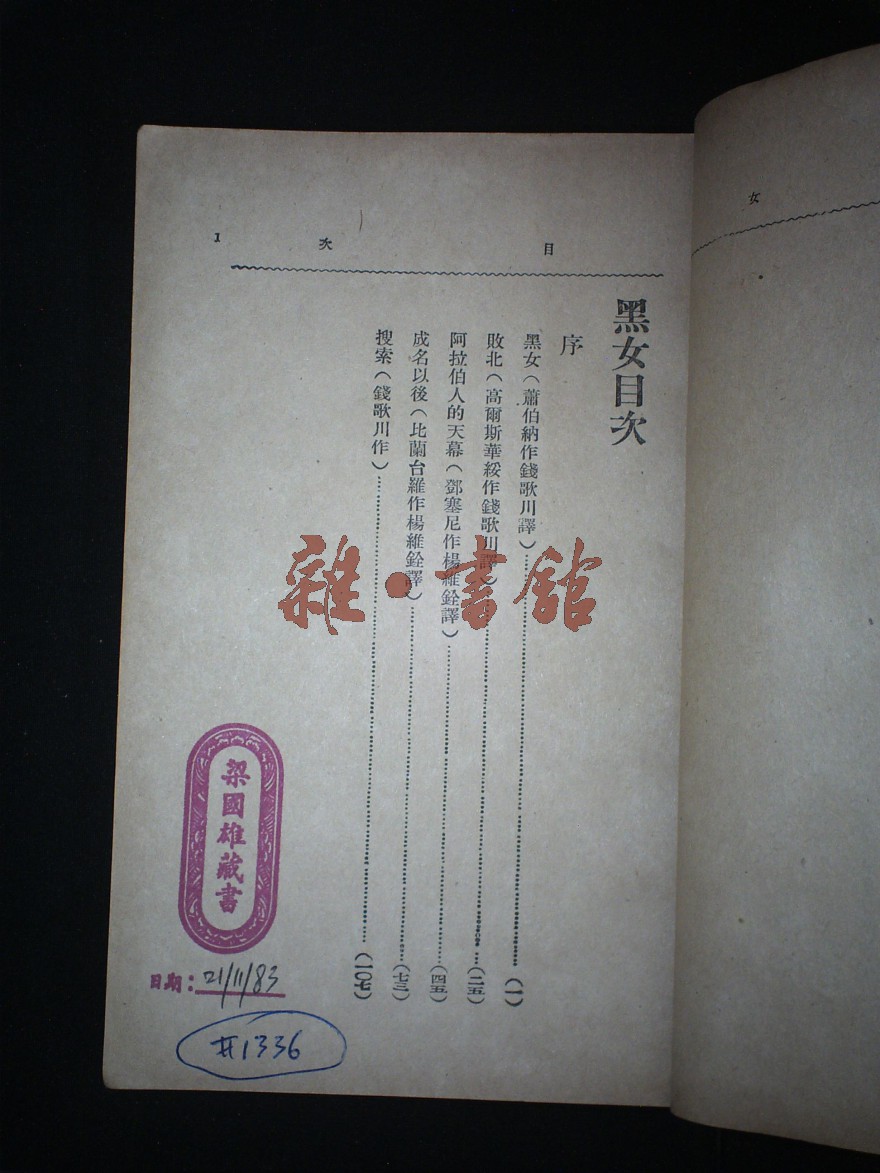 目次 1
黑女目次
序
黑女(蕭伯納作錢歌川譯)……(一)
敗北(高爾斯華綏作錢歌川譯)……(二五)
阿拉伯人的天幕(鄧塞尼作楊維銓譯)……(四五)
成名以後(比蘭台羅作楊維銓譯)……(七三)
搜索(錢歌川作)……(一〇七)
雜·書館
梁國雄藏書
日期:21/11/83
#1336
女